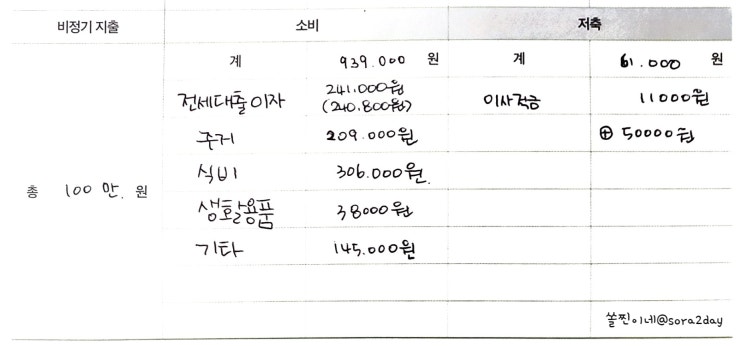 비정기 지출 소비 저축
계 939.000 원 계 61.000 원
전세대출이자 241.000원 이사적금 11000원
(240.800원)
주거 209.000원 ⊕ 50000원
식비 306.000원.
총 100만. 원
생활용품 38000원
기타 145.000원
쏠찐이네@sora2day